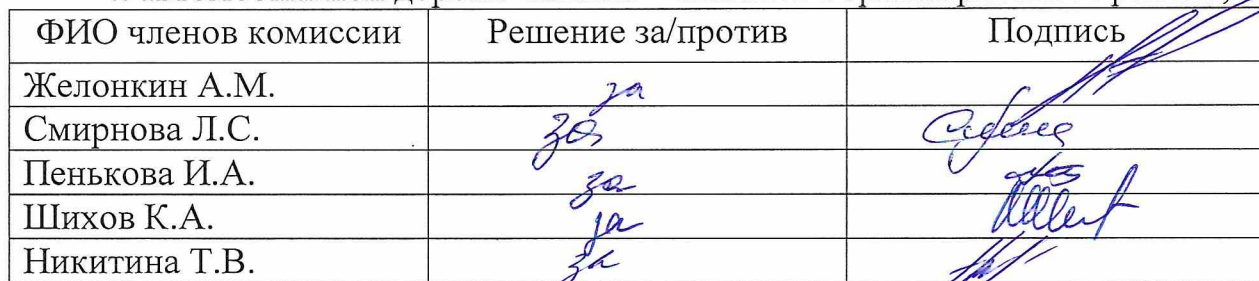 ФИО членов комиссии Решение за/против Подпись
Желонкин А.М. за
Смирнова Л.С. за
Пенькова И.А. за
Шихов К.А. за
Никитина Т.В. за